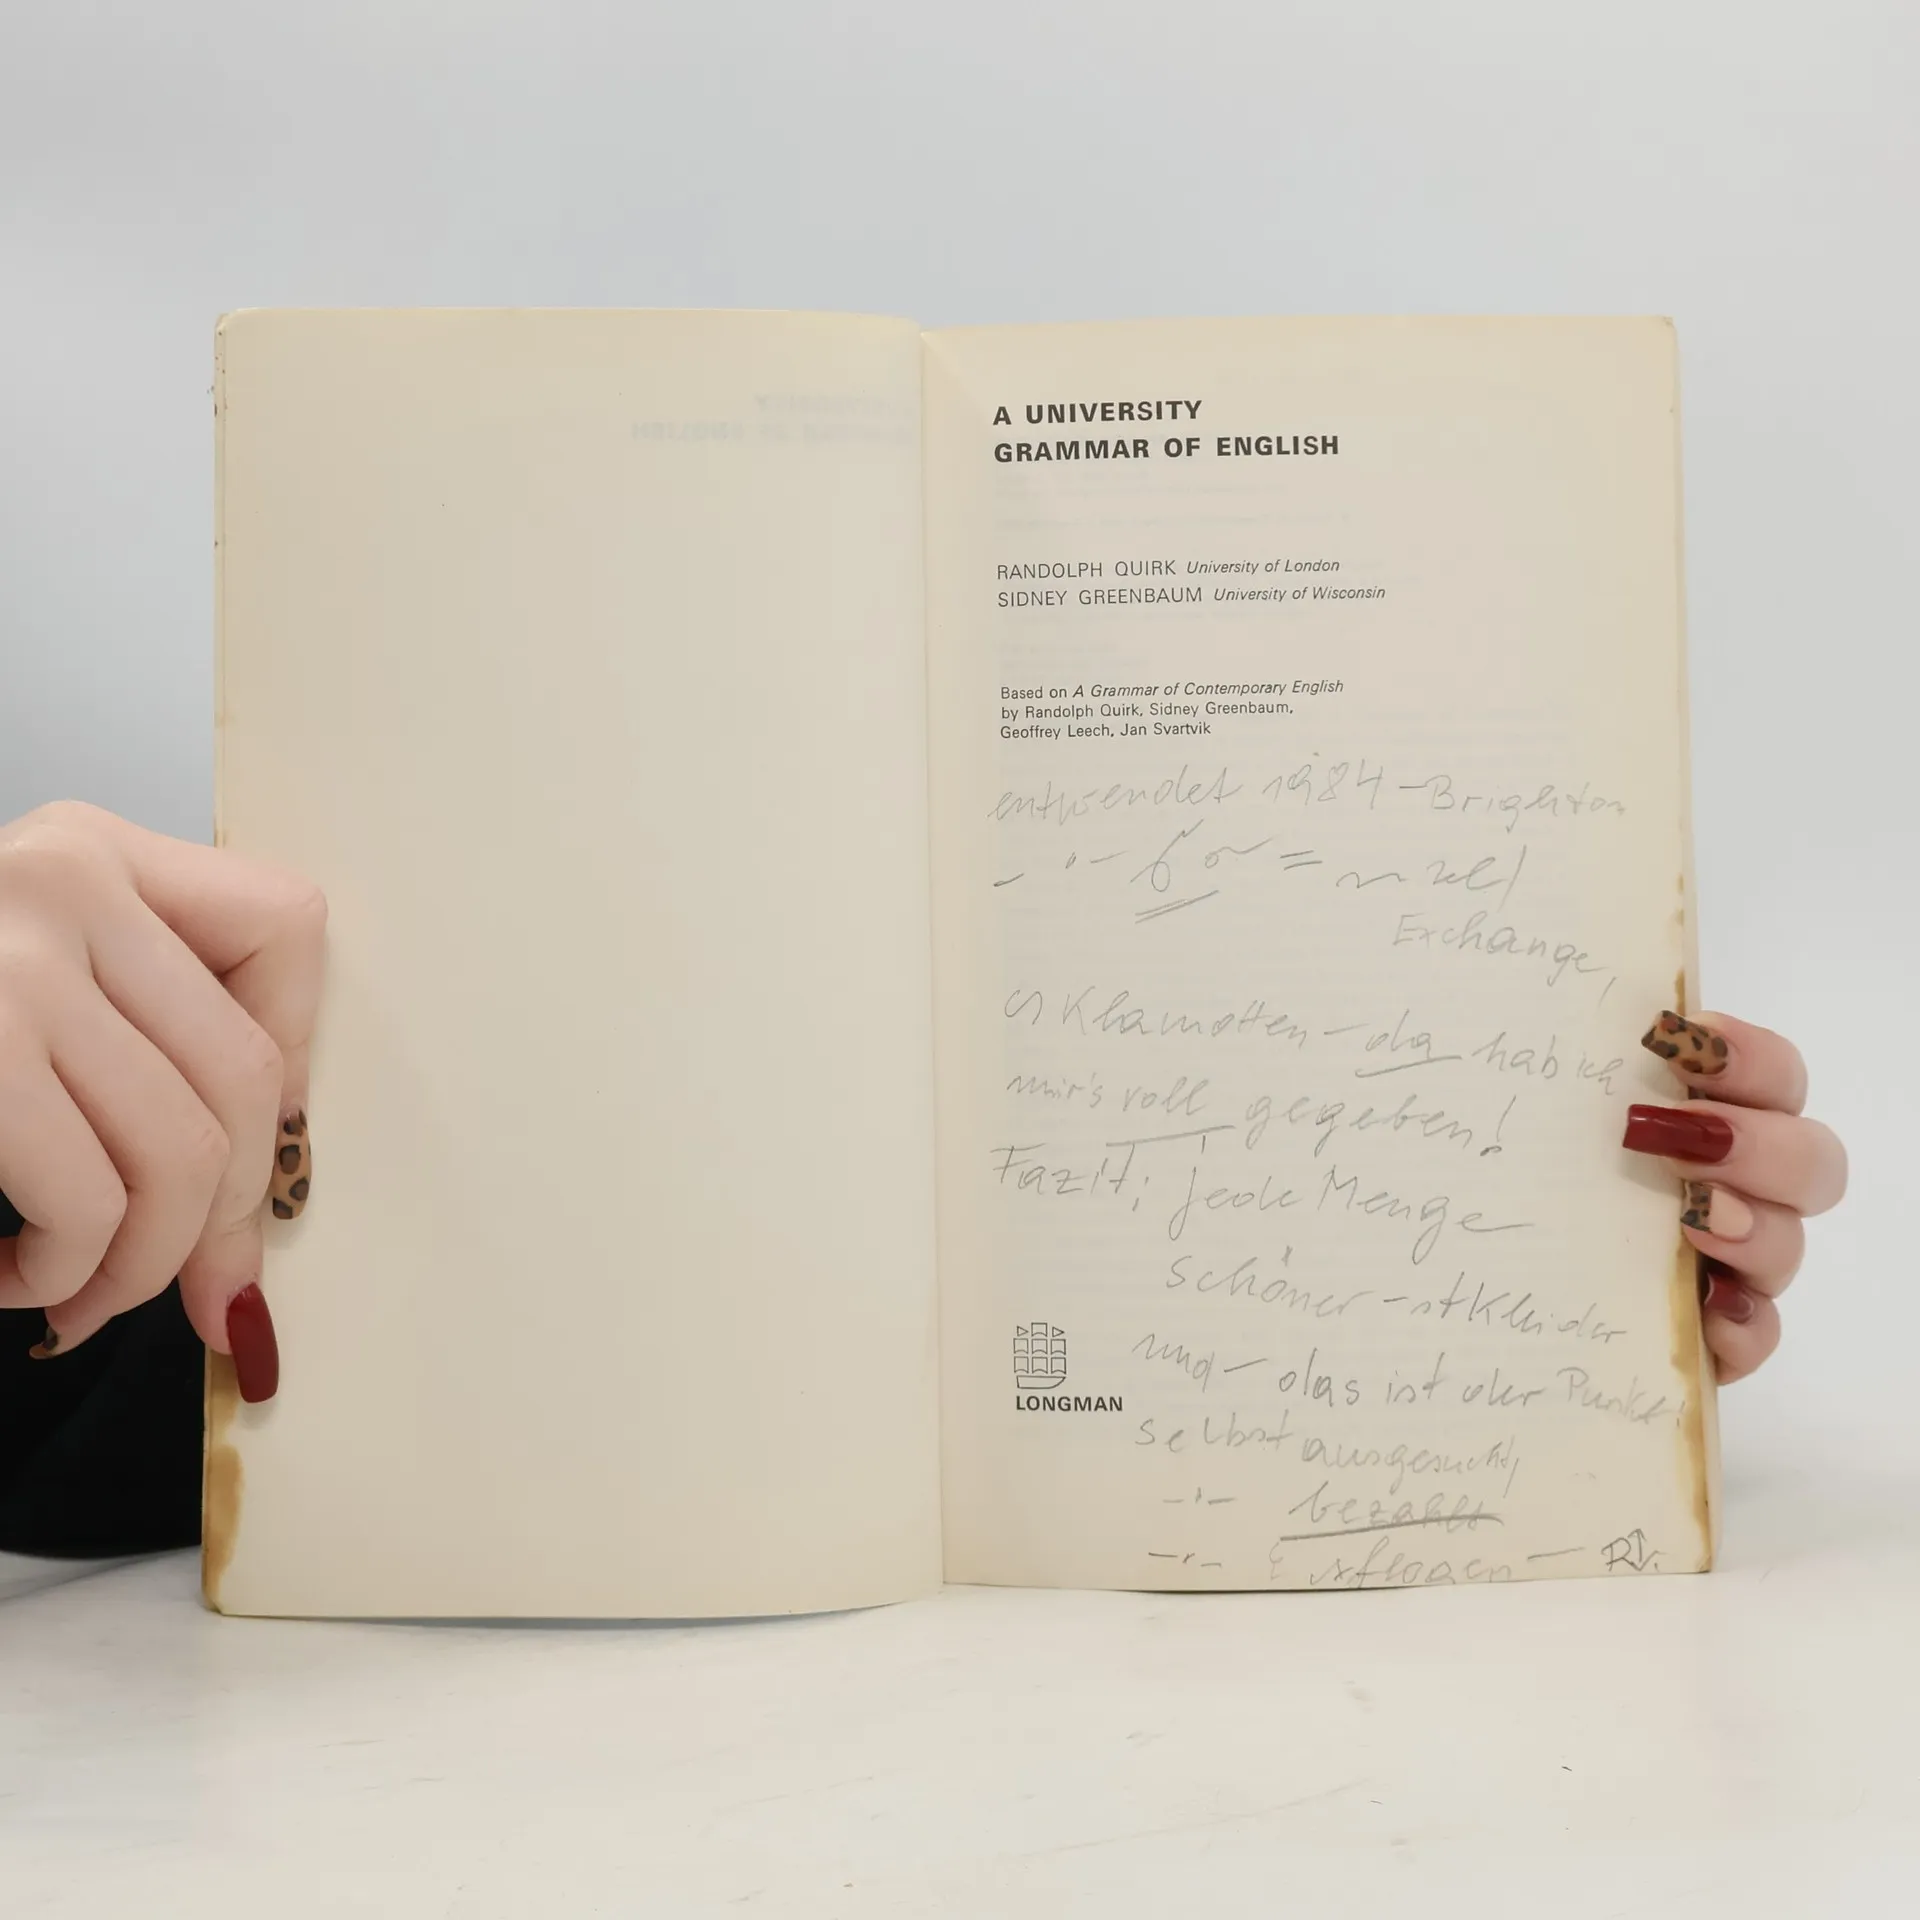 A UNIVERSITY
GRAMMAR OF ENGLISH
RANDOLPH QUIRK University of London
SIDNEY GREENBAUM University of Wisconsin
Based on A Grammar of Contemporary English
by Randolph Quirk, Sidney Greenbaum,
Geoffrey Leech, Jan Svartvik
entwendet 1984 – Brighton
Exchange,
Klamotten – da hab ich
mir's voll gegeben!
Fazit; jede Menge
schöner Kleider
und – das ist der Punkt!
selbst ausgesucht,
bezahlt
LONGMAN